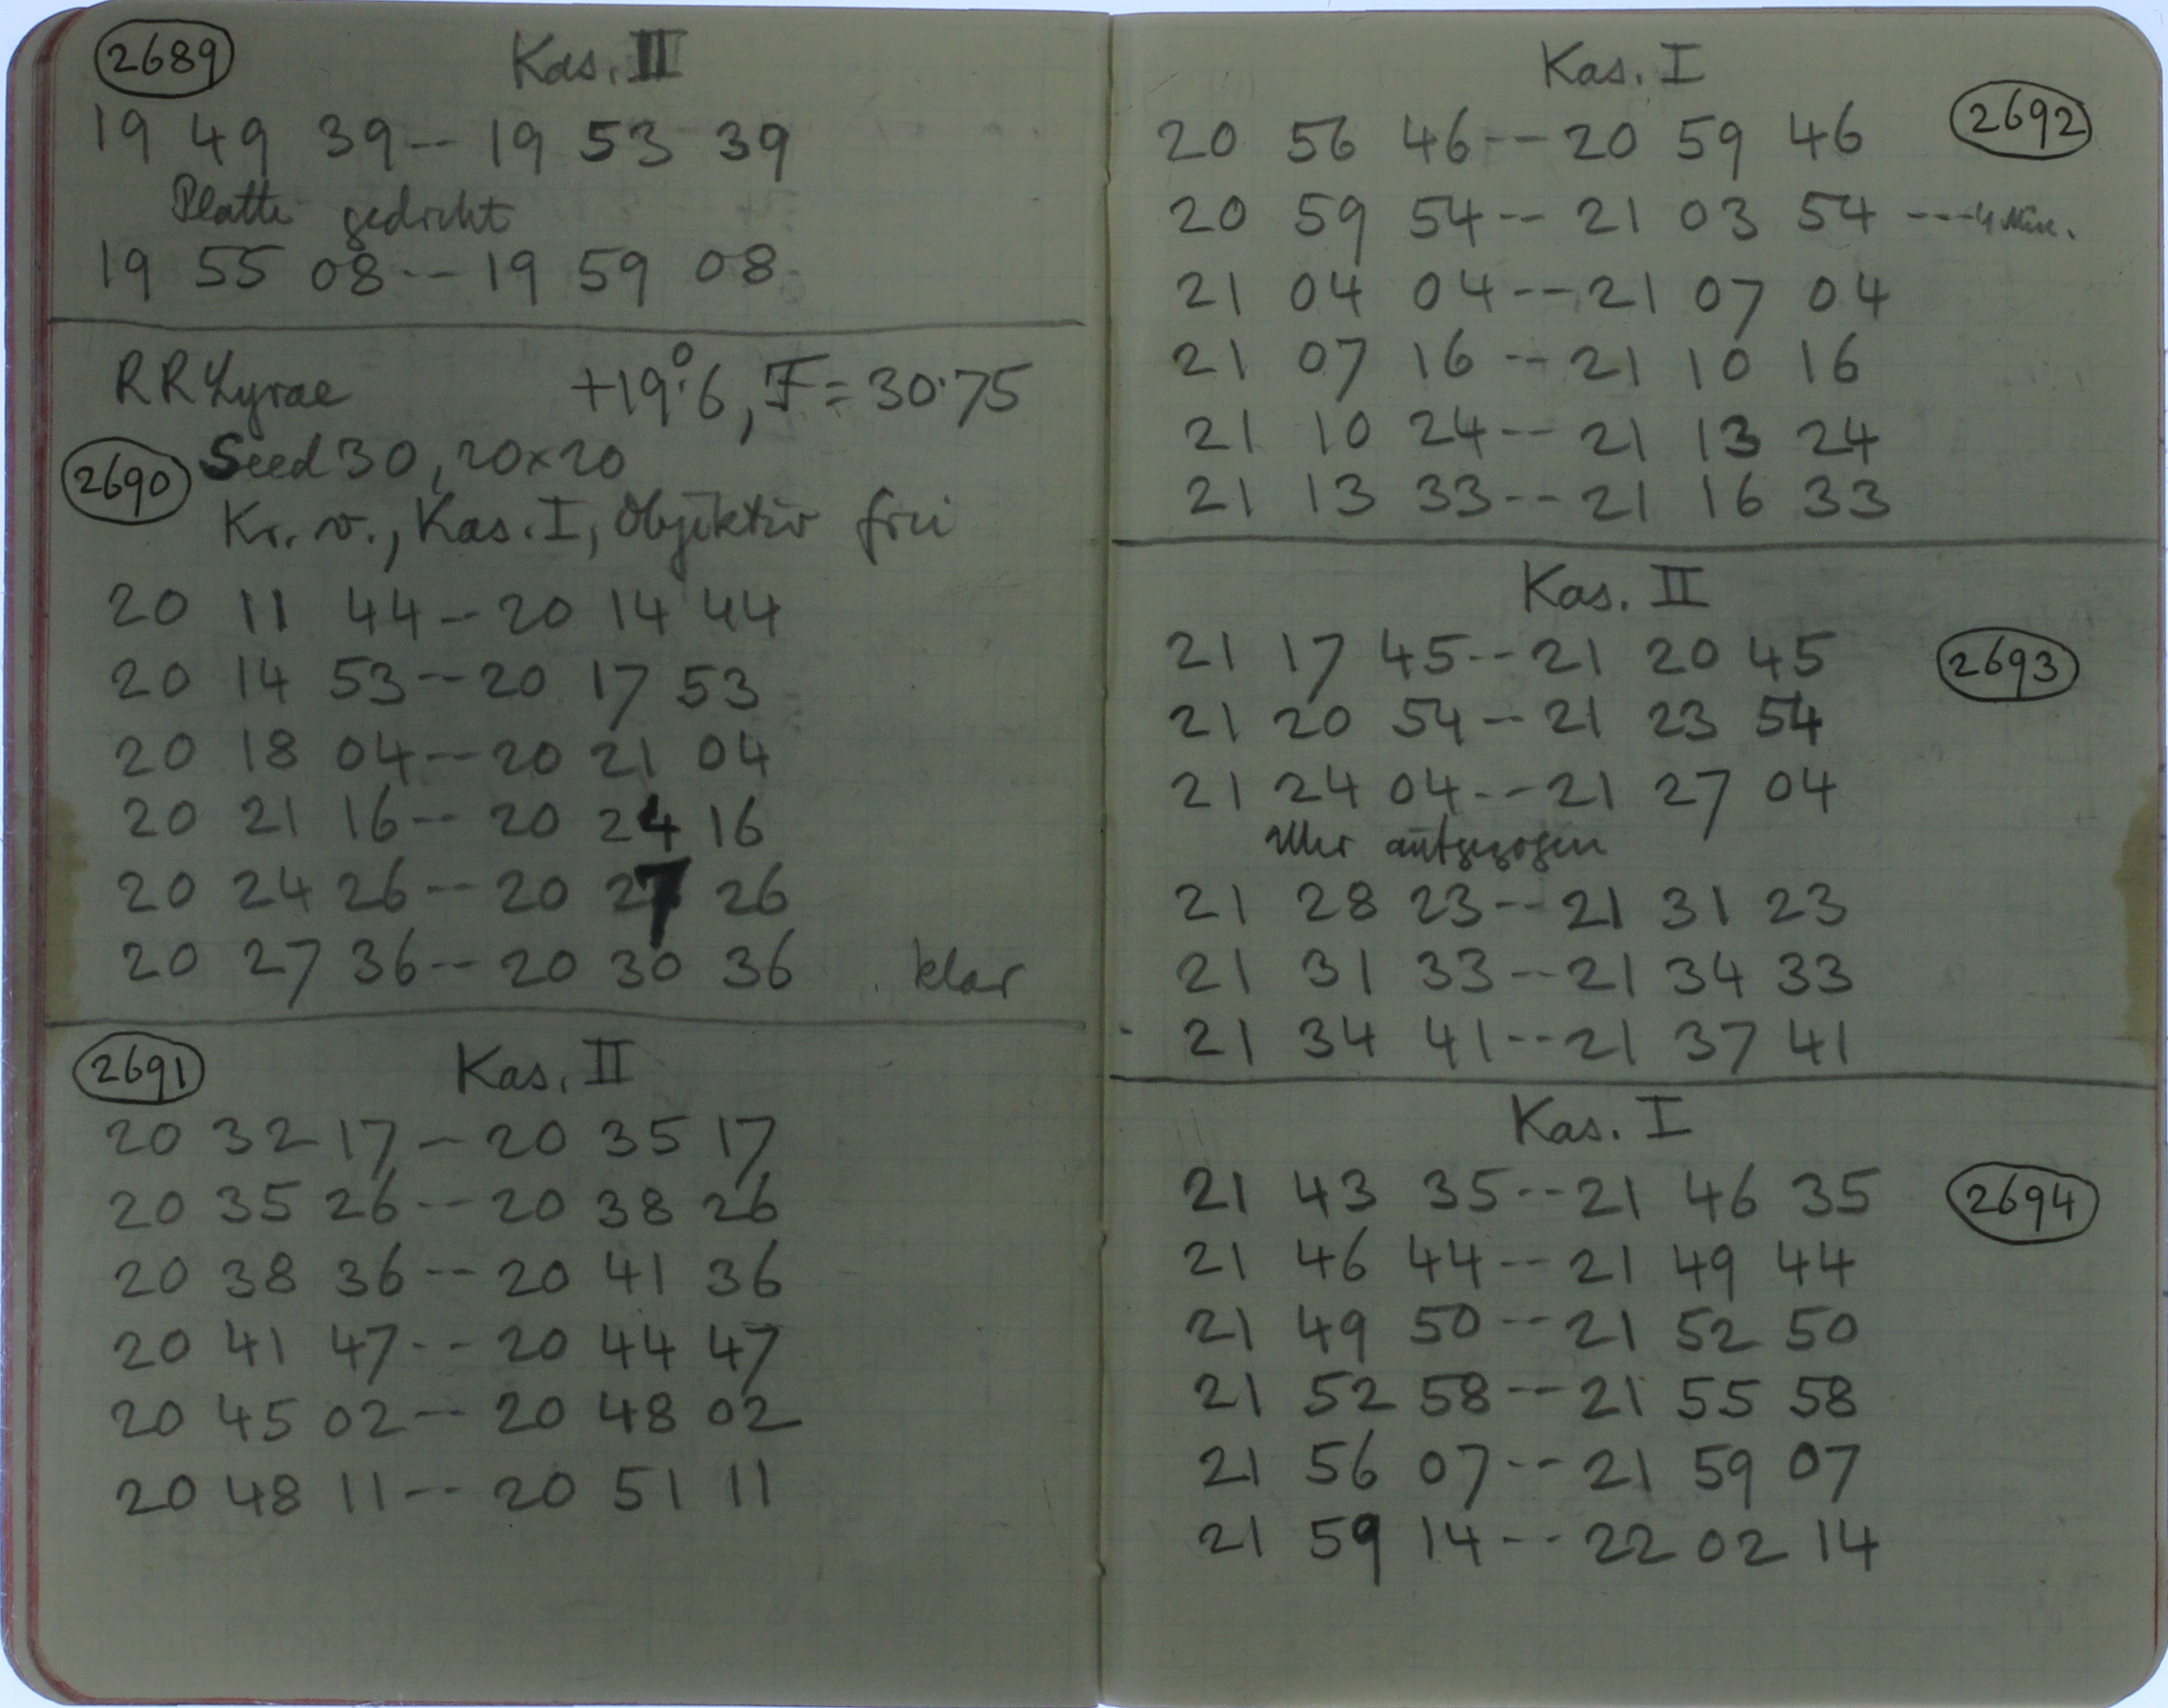 2689 Kas. II
19 49 39 -- 19 53 39
Platte gedreht
19 55 08 -- 19 59 08
RR Lyrae +19°.6, F = 30.75
2690 Seed 30, 20x20
Kr. v., Kas. I, Objektiv frei
20 11 44 -- 20 14 44
20 14 53 -- 20 17 53
20 18 04 -- 20 21 04
20 21 16 -- 20 24 16
20 24 26 -- 20 27 26
20 27 36 -- 20 30 36 klar
2691 Kas. II
20 32 17 -- 20 35 17
20 35 26 -- 20 38 26
20 38 36 -- 20 41 36
20 41 47 -- 20 44 47
20 45 02 -- 20 48 02
20 48 11 -- 20 51 11
Kas. I
20 56 46 -- 20 59 46 2692
20 59 54 -- 21 03 54 --- 4 Min.
21 04 04 -- 21 07 04
21 07 16 -- 21 10 16
21 10 24 -- 21 13 24
21 13 33 -- 21 16 33
Kas. II
21 17 45 -- 21 20 45 2693
21 20 54 -- 21 23 54
21 24 04 -- 21 27 04
Uhr aufgezogen
21 28 23 -- 21 31 23
21 31 33 -- 21 34 33
21 34 41 -- 21 37 41
Kas. I
21 43 35 -- 21 46 35 2694
21 46 44 -- 21 49 44
21 49 50 -- 21 52 50
21 52 58 -- 21 55 58
21 56 07 -- 21 59 07
21 59 14 -- 22 02 14